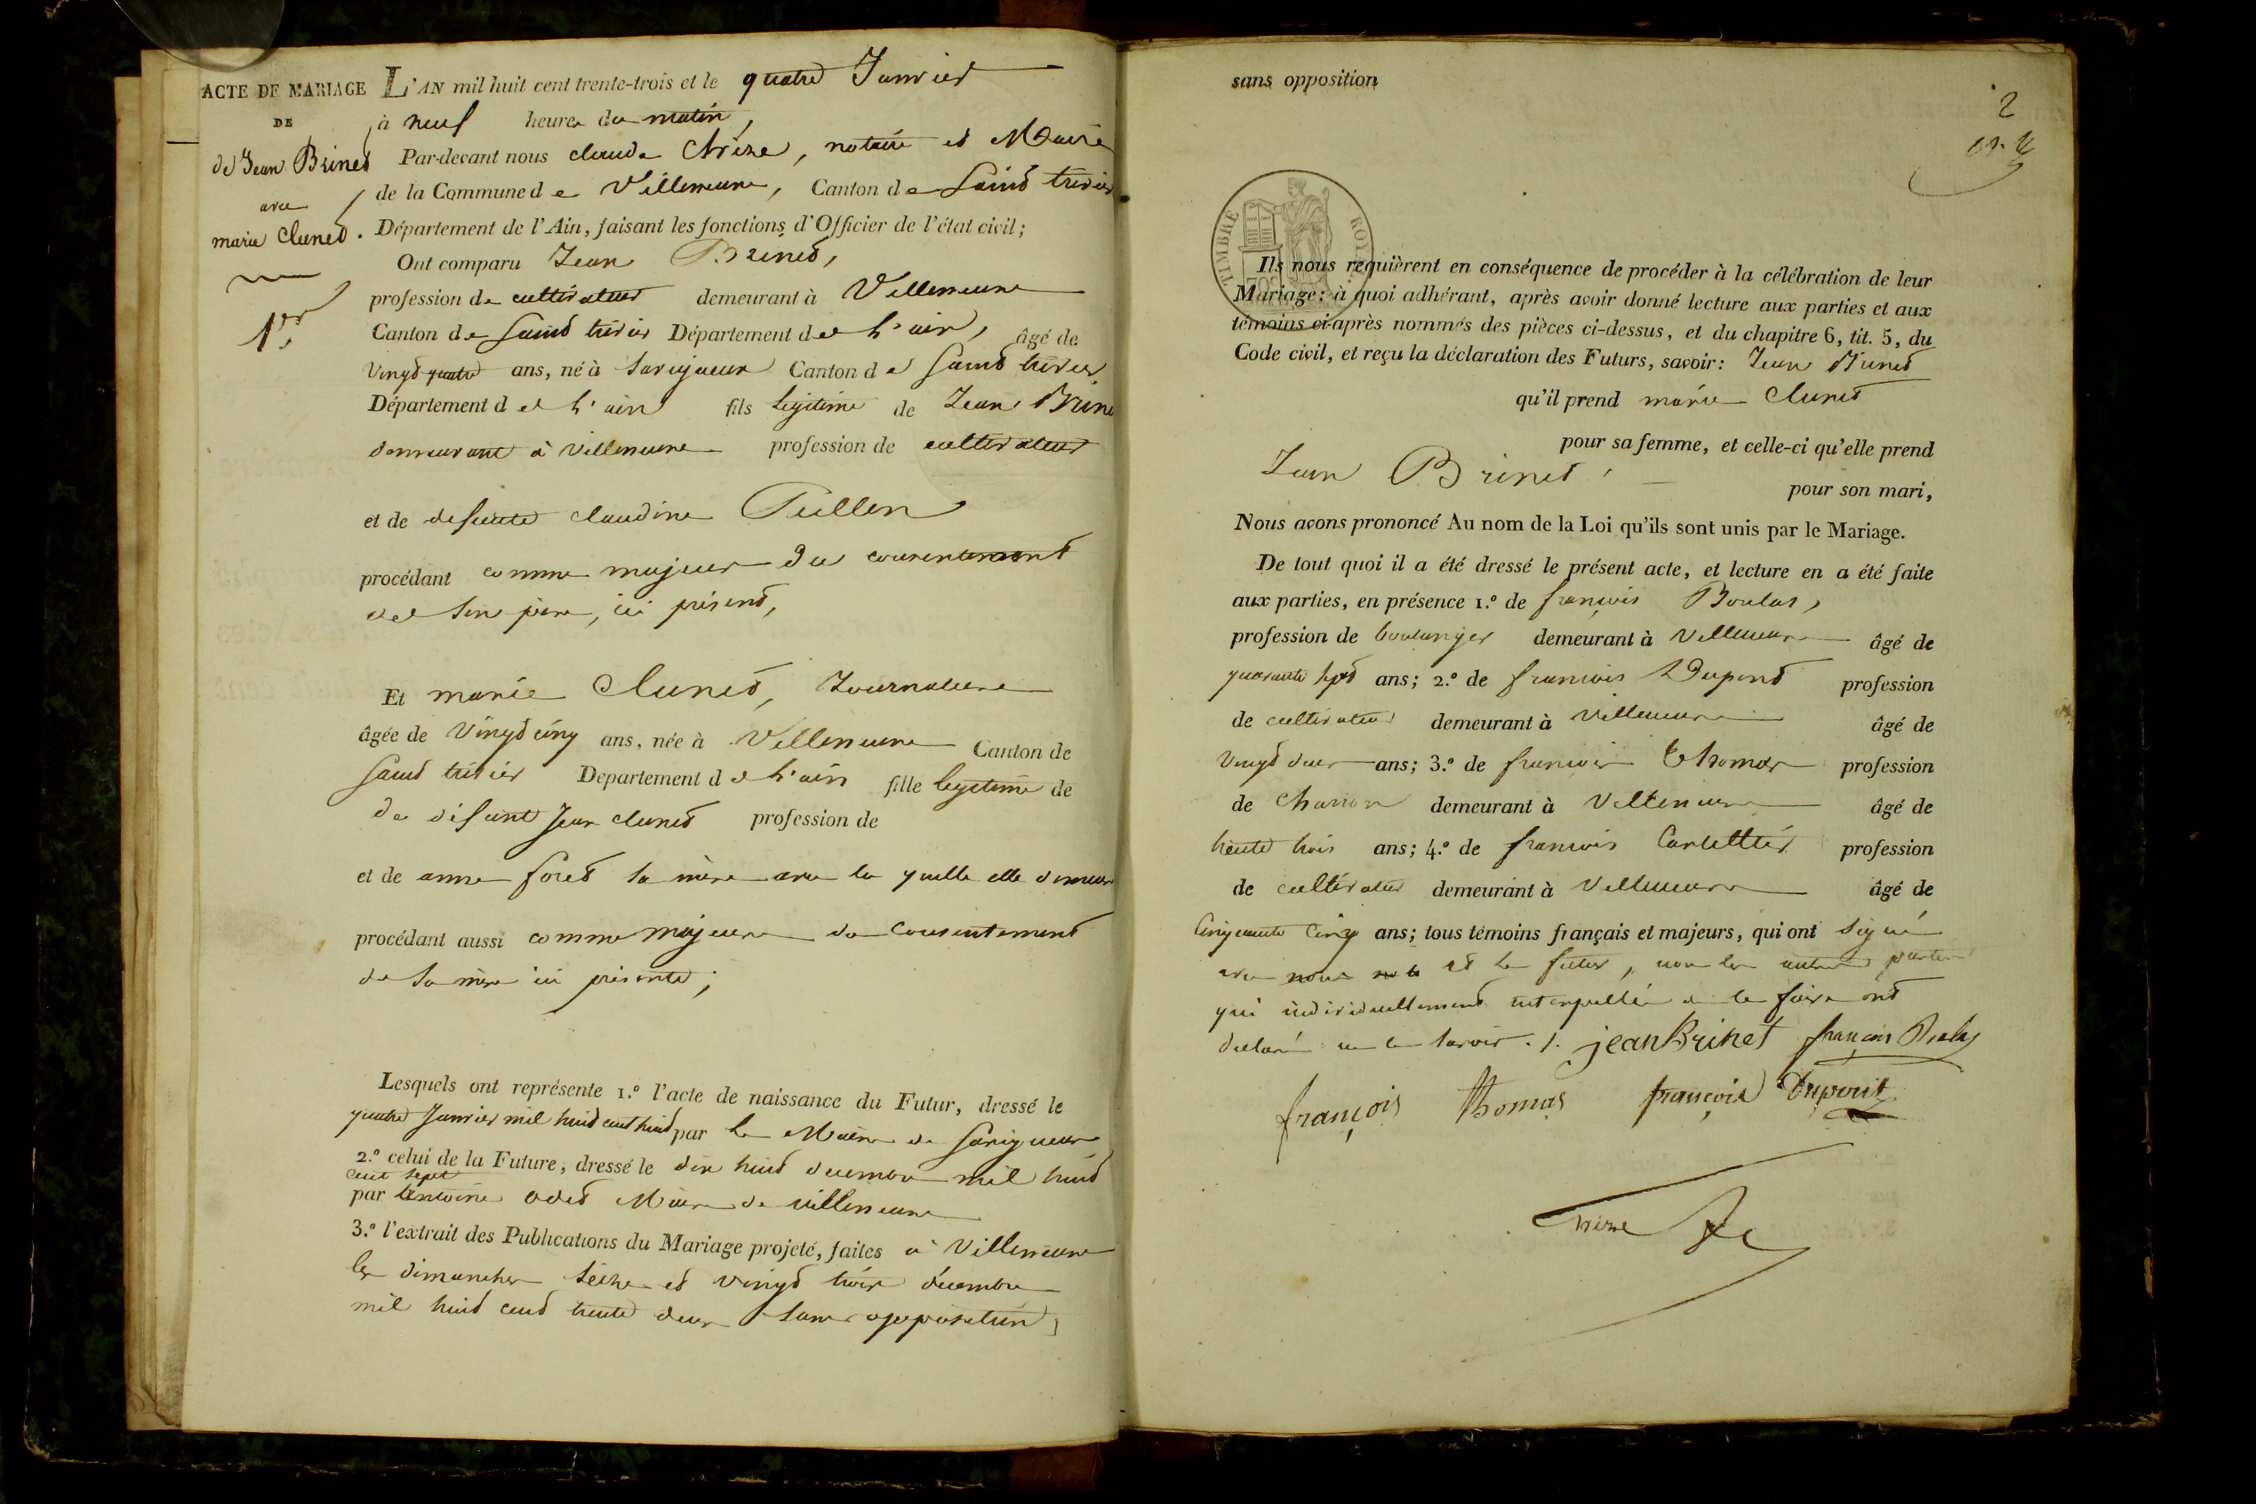 ACTE DE MARIAGE
DE
de Jean Brinet
avec
marie Clunet.
1er
L'AN mil huit cent trente-trois et le quatre Janvier
à neuf heures du matin,
Par-devant nous claude notaire et Maire
de la Commune de Villeneuve, Canton de Saint trivier
Département de l'Ain, faisant les fonctions d'Officier de l'état civil;
Ont comparu Jean Brinet,
profession de cultivateur demeurant à Villeneuve
Canton de Saint trivier Département de l'ain, âgé de
Vingt quatre ans, né à Savigneux Canton de Saint trivier
Département de l'ain fils légitime de Jean Brinet
demeurant à Villeneuve profession de cultivateur
et de defunte claudine
procédant comme majeur du consentement
de son père, ici présent,
Et marie Clunet, Journaliere
âgée de Vingt cinq ans, née à Villeneuve Canton de
Saint trivier Departement de l'ain fille légitime de
de défunt Jean clunet profession de
et de anne foret sa mère avec la quelle elle demeure
procédant aussi comme majeure du consentement
de sa mère ici présente;
Lesquels ont représente 1.º l'acte de naissance du Futur, dressé le
quatre Janvier mil huit cent huit par le Maire de Savigneux
2.º celui de la Future, dressé le dix huit decembre mil huit
cent sept
par antoine odet Maire de villeneuve
3.º l'extrait des Publications du Mariage projeté, faites à Villeneuve
les dimanches seize et vingt trois décembre
mil huit cent trente deux sans opposition,
sans opposition
2
TIMBRE ROYAL
Ils nous requièrent en conséquence de procéder à la célébration de leur
Mariage: à quoi adhérant, après avoir donné lecture aux parties et aux
témoins ci-après nommés des pièces ci-dessus, et du chapitre 6, tit. 5, du
Code civil, et reçu la déclaration des Futurs, savoir: Jean Brinet
qu'il prend marie Clunet
pour sa femme, et celle-ci qu'elle prend
Jean Brinet
pour son mari,
Nous avons prononcé Au nom de la Loi qu'ils sont unis par le Mariage.
De tout quoi il a été dressé le présent acte, et lecture en a été faite
aux parties, en présence 1.º de françois
profession de boulanger demeurant à Villeneuve âgé de
quarante sept ans; 2.º de francois Dupont profession
de cultivateur demeurant à Villeneuve âgé de
Vingt deux ans; 3.º de francois thomas profession
de charron demeurant à Villeneuve âgé de
trente trois ans; 4.º de francois profession
de cultivateur demeurant à Villeneuve âgé de
Cinquante Cinq ans; tous témoins français et majeurs, qui ont signé
avec nous et le futur, non les autres parties
qui individuellement interpellés de le faire ont
déclaré ne le savoir. /. jean Brinet françois
françois thomas françois Dupont